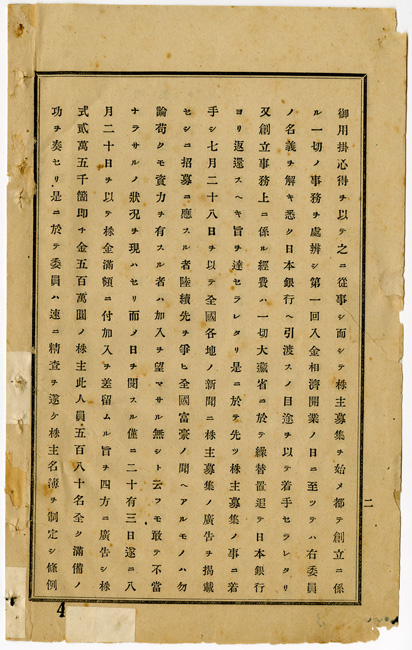 御用掛心得ヲ以テ之ニ從事シ而シテ株主募集ヲ始メ都テ創立ニ係
ル一切ノ事務ヲ處辨シ第一回入金相濟開業ノ日ニ至ツテハ右委員
ノ名義ヲ解キ悉ク日本銀行ヘ引渡スノ目途ヲ以テ着手セラレタリ
又創立事務上ニ係ル經費ハ一切大藏省ニ於テ繰替置追テ日本銀行
ヨリ返還スヘキ旨ヲ達セラレタリ是ニ於テ先ツ株主募集ノ事ニ着
手シ七月二十八日ヲ以テ全國各地ノ新聞ニ株主募集ノ廣告ヲ揭載
セシニ招募ニ應スル者陸續先ヲ爭ヒ全國富豪ノ聞ヘアルモノハ勿
論苟クモ資力ヲ有スル者ハ加入ヲ望マサル無シト云フモ敢テ不當
ナラサルノ狀況ヲ現ハセリ而メ日ヲ閱スル僅ニ二十有三日遂ニ八
月二十日ヲ以テ株金滿額ニ付加入ヲ差留ムル旨ヲ四方ニ廣告シ株
式貳萬五千箇即チ金五百萬圓ノ株主此人員五百八十名全ク滿備ノ
功ヲ奏セリ是ニ於テ委員ハ速ニ精査ヲ遂ケ株主名簿ヲ制定シ條例
二
4